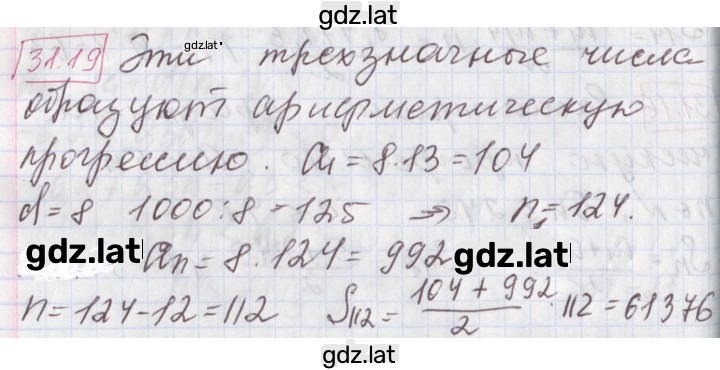 gdz.lat
31.19 Эти трехзначные числа
gdz.lat
образуют арифметическую
прогрессию. a₁ = 8·13 = 104
d = 8 1000 : 8 = 125 ⇒ n = 124.
gdz.lat aₙ = 8·124 = 992 gdz.lat
n = 124 - 12 = 112 S₁₁₂ = (104 + 992)/2 · 112 = 61376
gdz.lat